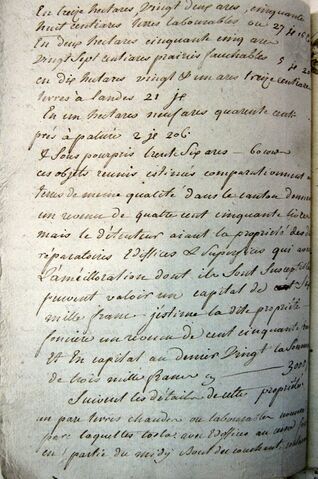 En treize hectares vingt deux ares, cinquante
huit centiares terres labourables ou 27 je 16
En deux hectares cinquante cinq ares
vingt sept centiares prairies fauchables 5 je 20
en dix hectares vingt & un ares treize centiares
terres à landes 21 je
En un hectares neuf ares quarente cent
près à pature 2 je 206
& Sous pourpris trente Six ares
ces objets réunis estimés comparativement a
terres de meme qualité dans le canton donne
un revenu de quatre cent cinquante livres
mais le détenteur aiant la propriété des
réparatoires Ediffices & Superfices qui
L'amélioration dont ils Sont Susceptible
peuvent valoir un capital de Six
mille franc j'estime la dite propriété
fonciere un revenu de cent cinquante
Et En capital au denier vingt la Somme
de trois mille francs 3000
Suivent les détails de cette propriété
un parc terres chaudes ou labourable nommé
parc laquelles costa avec Ediffices au cerné
en partie du midy Bout du couchant